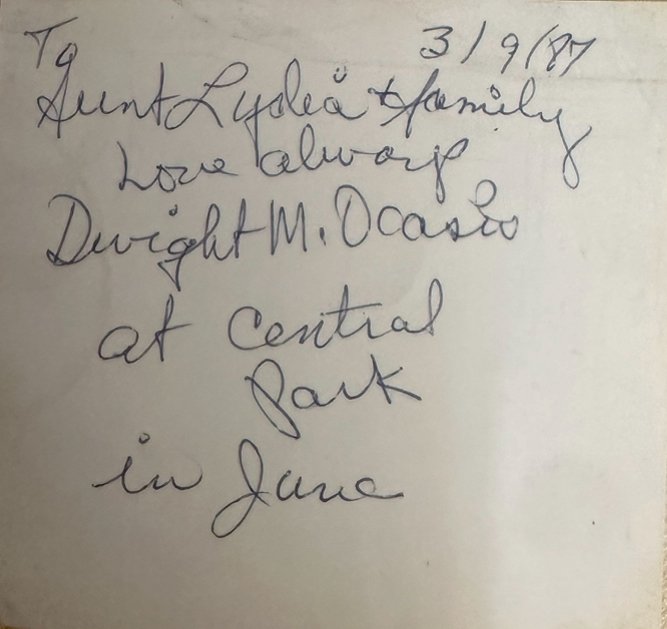 To 3/9/87
Aunt Lydia & family
Love always
Dwight M. Ocasio
at Central
Park
in June